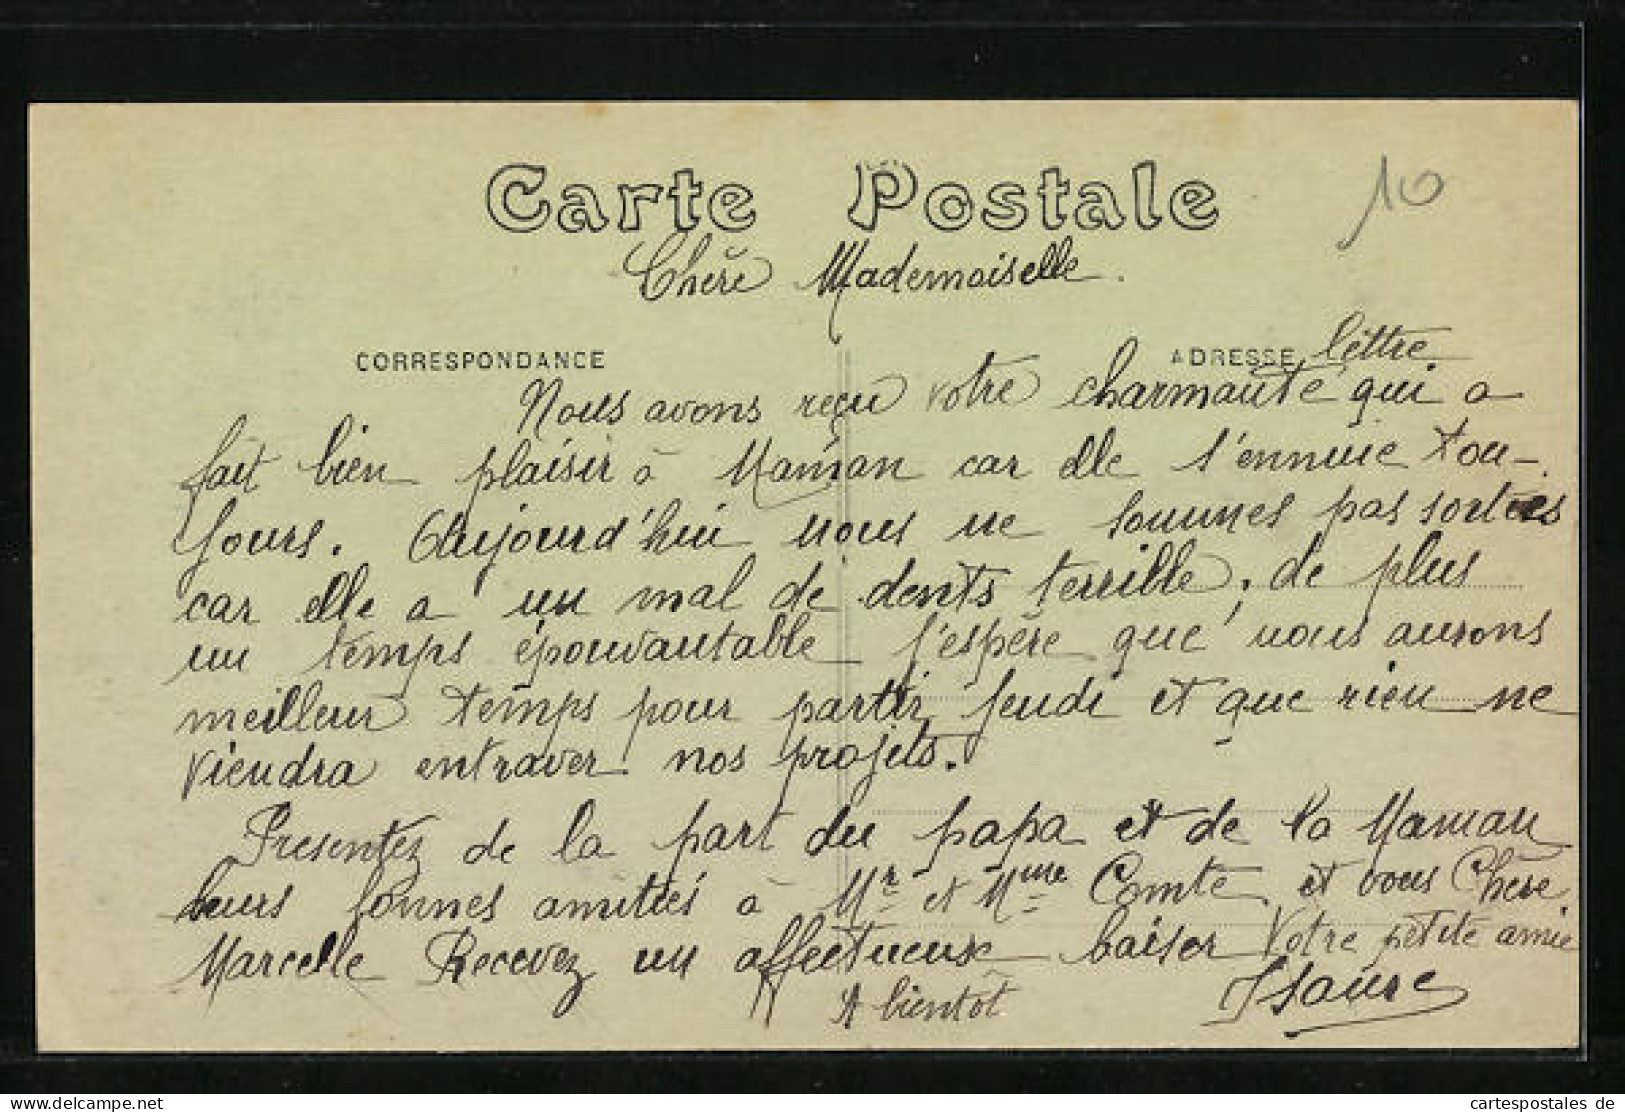 Carte Postale
10
Chère Mademoiselle.
CORRESPONDANCE
ADRESSE
lettre
Nous avons reçu votre charmante qui a
fait bien plaisir à Maman car elle s'ennuie tou-
jours. Aujourd'hui nous ne sommes pas sorties
car elle a un mal de dents terrible, de plus
un temps épouvantable j'espère que nous aurons
meilleur temps pour partir jeudi et que rien ne
viendra entraver nos projets.
Presentez de la part du papa et de la Maman
leurs bonnes amitiés à Mr et Mme Comte et vous Chère
Marcelle Recevez un affectueux baiser Votre petite amie
A bientôt
Isaure
www.cartespostales.de
cartespostales de